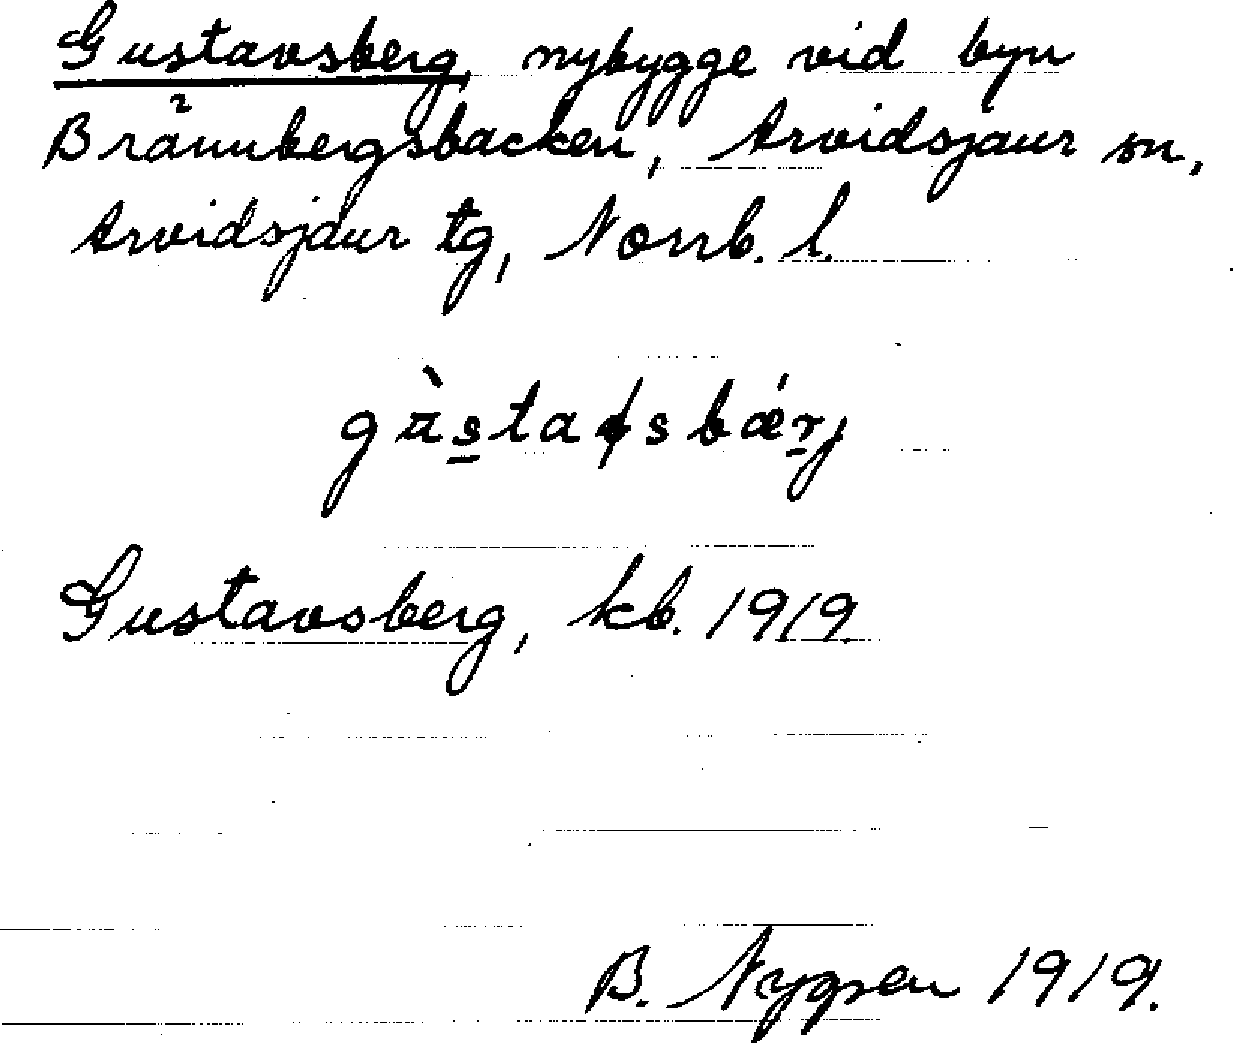 Gustavsberg, nybygge vid byn
Brännbergsbacken, Arvidsjaur sn,
Arvidsjaur tg, Norrb. l.
Gustavsberg, kb. 1919
B. Nygren 1919.